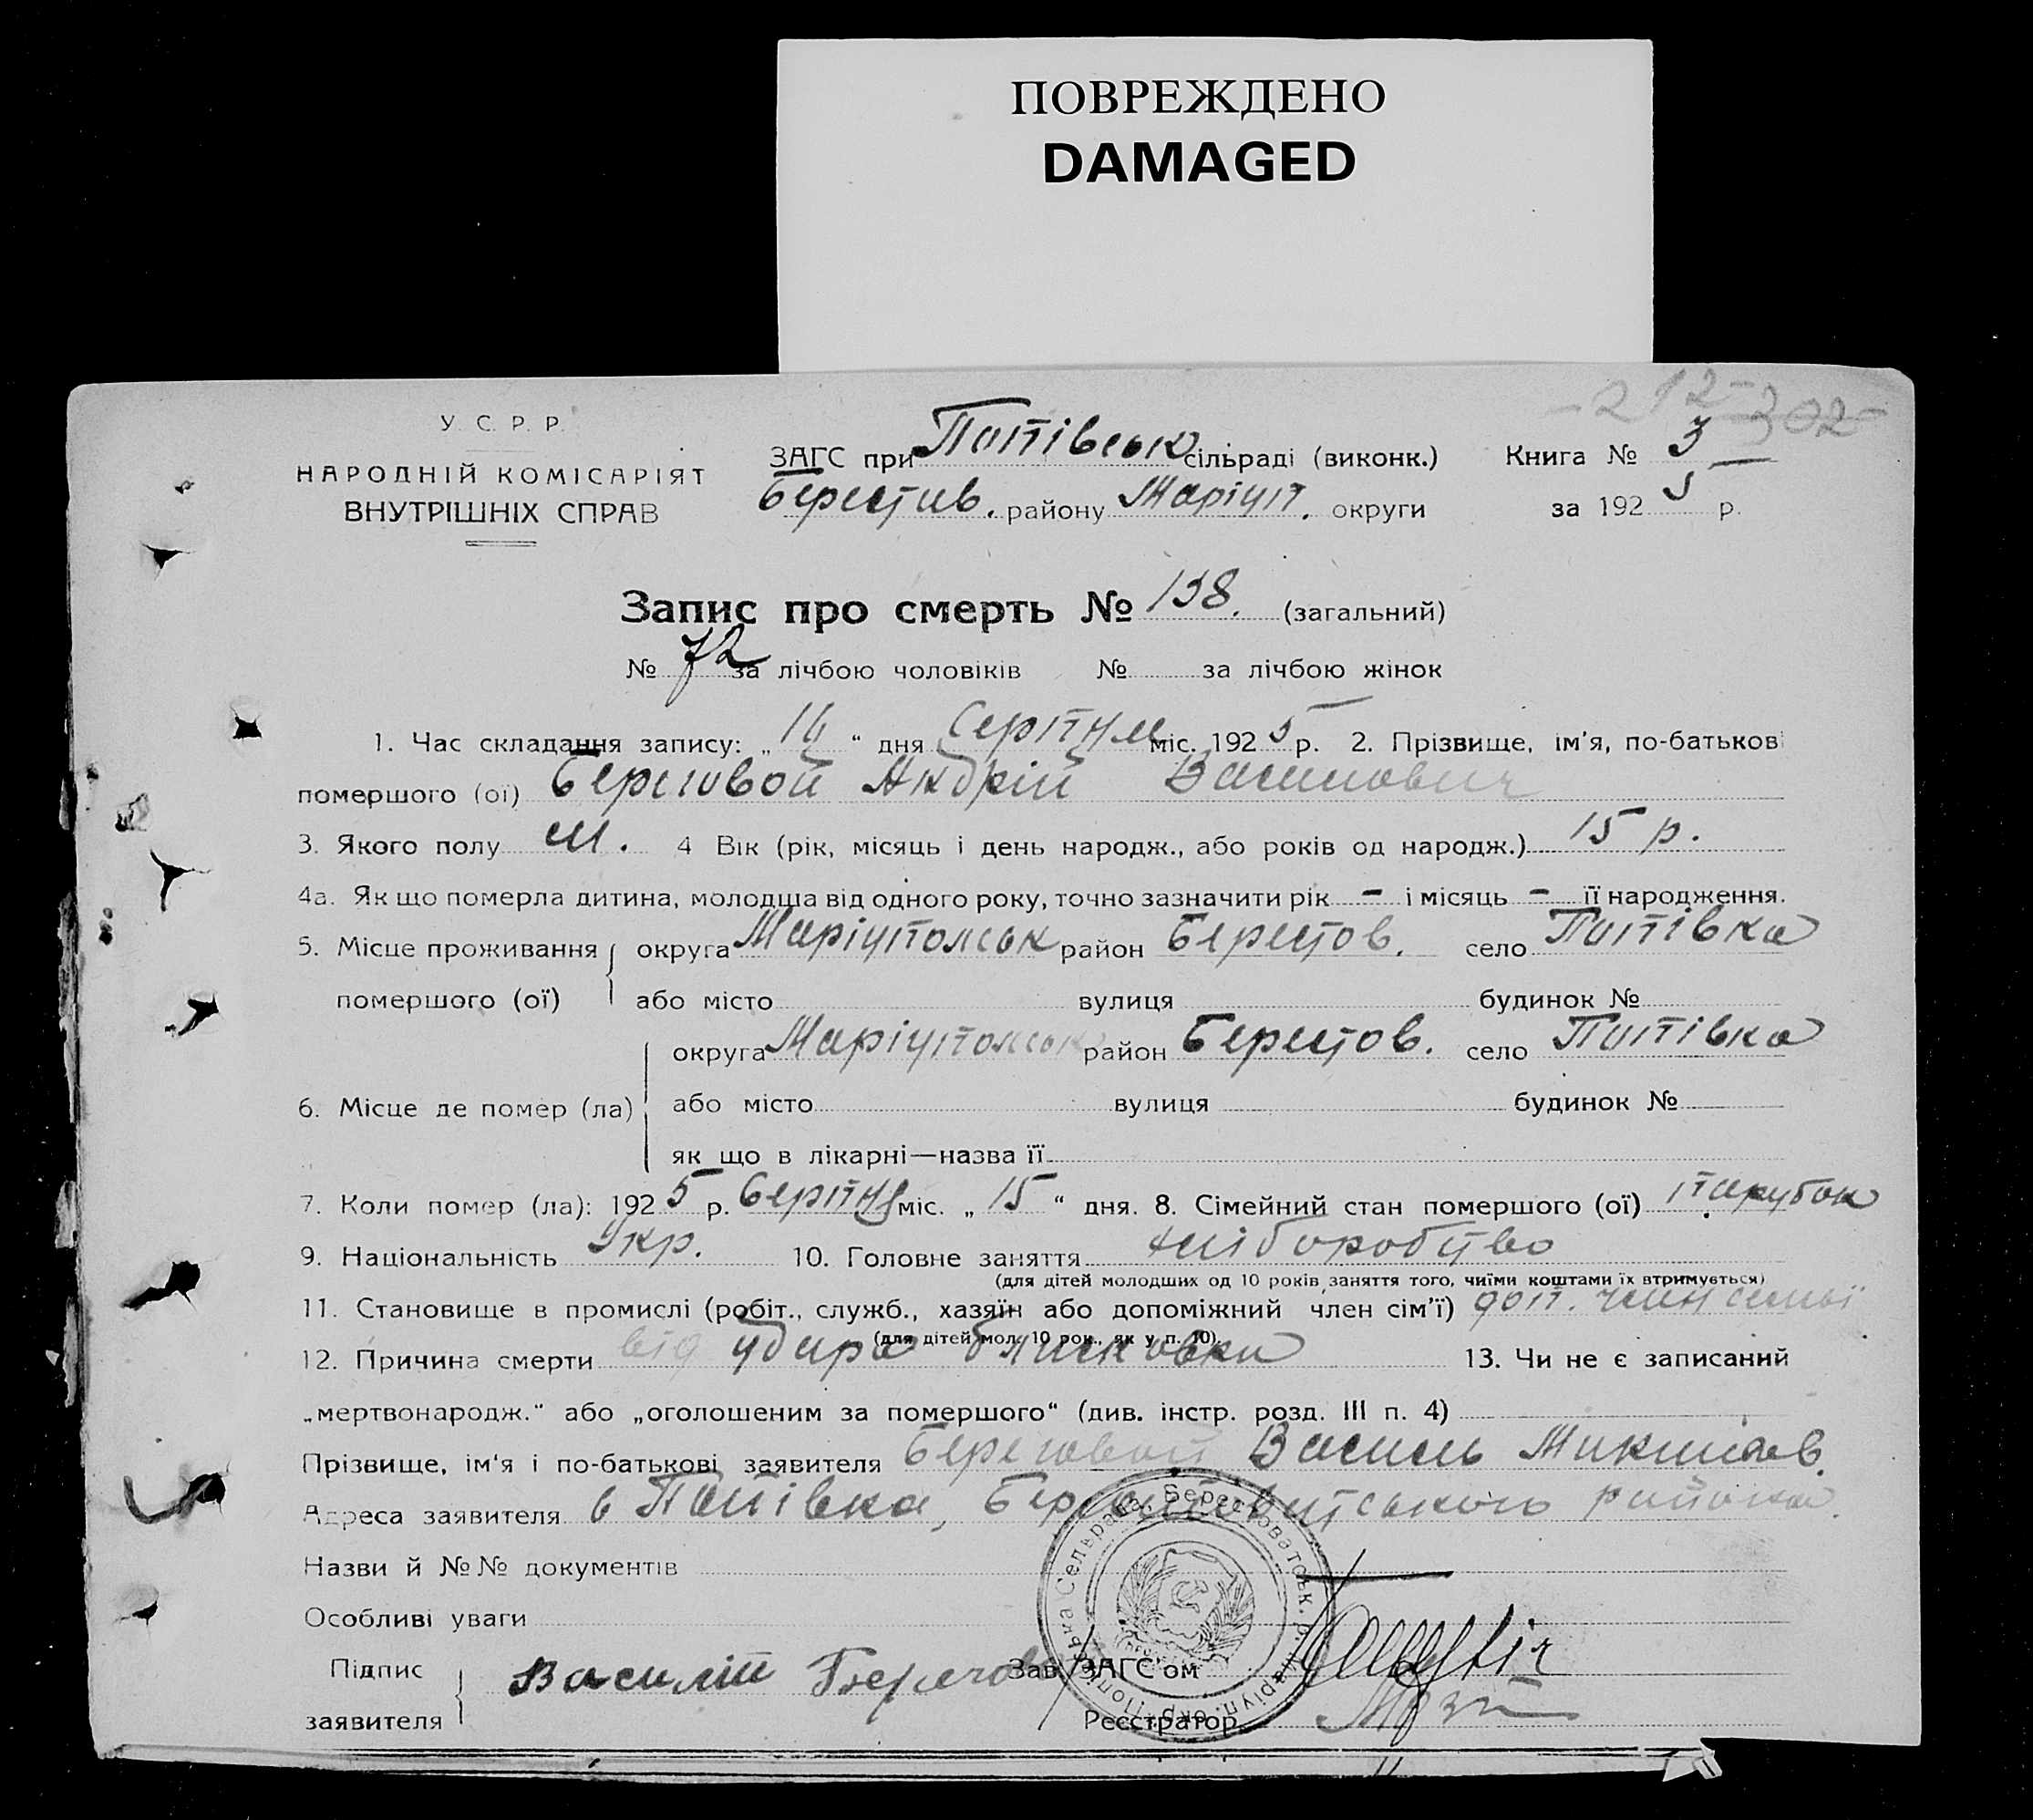 ПОВРЕЖДЕНО
DAMAGED
-212- 302-
У. С. Р. Р.
НАРОДНІЙ КОМІСАРІЯТ
ВНУТРІШНІХ СПРАВ
ЗАГС при Попівськ сільраді (виконк.) Книга № 3
Берестив. району Маріуп. округи за 1925 р.
Запис про смерть № 138. (загальний)
№ 72 за лічбою чоловіків № за лічбою жінок
1. Час складання запису: „16“ дня Серпня міс. 1925 р. 2. Прізвище, ім'я, по-батькові
помершого (ої) Береговой Андрій Василович
3. Якого полу М. 4 Вік (рік, місяць і день народж., або років од народж.) 15 р.
4а. Як що померла дитина, молодша від одного року, точно зазначити рік – і місяць – її народження.
5. Місце проживання округа Маріупольськ район Берестов. село Попівка
помершого (ої) або місто вулиця будинок №
округа Маріупольськ район Берестов. село Попівка
6. Місце де помер (ла) або місто вулиця будинок №
як що в лікарні—назва її
7. Коли помер (ла): 1925 р. Серпня міс. „15“ дня. 8. Сімейний стан помершого (ої) парубок
9. Національність Укр. 10. Головне заняття хліборобство
(для дітей молодших од 10 років заняття того, чиїми коштами їх втримується)
11. Становище в промислі (робіт., служб., хазяїн або допоміжний член сім'ї) доп. член семьї
(для дітей мол. 10 рок., як у п. 10).
12. Причина смерти від удара блисковки 13. Чи не є записаний
„мертвонародж.“ або „оголошеним за помершого“ (див. інстр. розд. III п. 4)
Прізвище, ім'я і по-батькові заявителя Береговой Василь
Адреса заявителя с Попівка, района
Назви й №№ документів
Особливі уваги
Підпис Василій Зав. ЗАГС'ом
заявителя Реєстратор
Попівська Сельрада, Берестоватськ. р. Маріуп. окр.